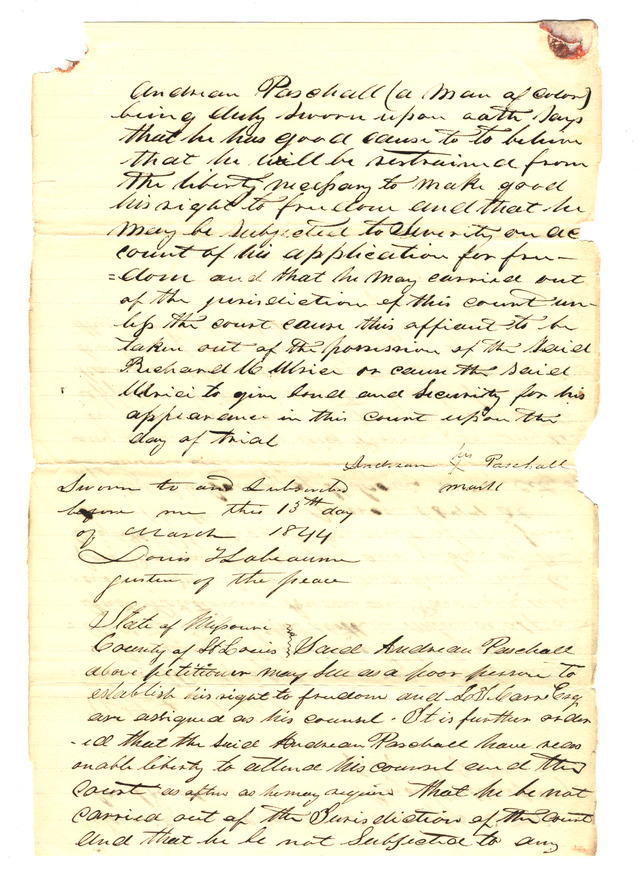 Andrean Paschall (a man of color)
being duly sworn upon oath says
that he has good cause to to believe
that he will be restrained from
the liberty necessary to make good
his right to freedom and that he
may be subjected to severity on ac
count of his application for free-
=dom and that he may carried out
of the jurisdiction of this court un-
less the court cause this affiant to be
taken out of the possession of the said
Richard W Ulrici or cause the said
Ulrici to give bond and security for his
appearance in this court upon the
day of trial
Andrean his X mark Paschall
Sworn to and Subscribed
before me this 13th day
of March 1844
Louis T Labeaume
justice of the peace
State of Missouri
County of St Louis Said Andrean Paschall
above petitioner may sue as a poor person to
establish his right to freedom and Esq
are assigned as his counsel. It is further order
-ed that the said Andrean Paschall have reas
onable liberty to attend his counsel and the
court as often as he may require that he be not
carried out of the Jurisdiction of the Court
and that he be not Subjected to any